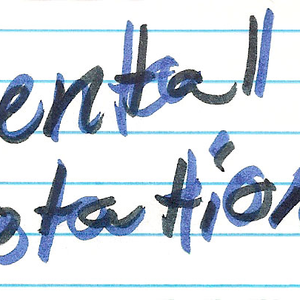 ental
otation